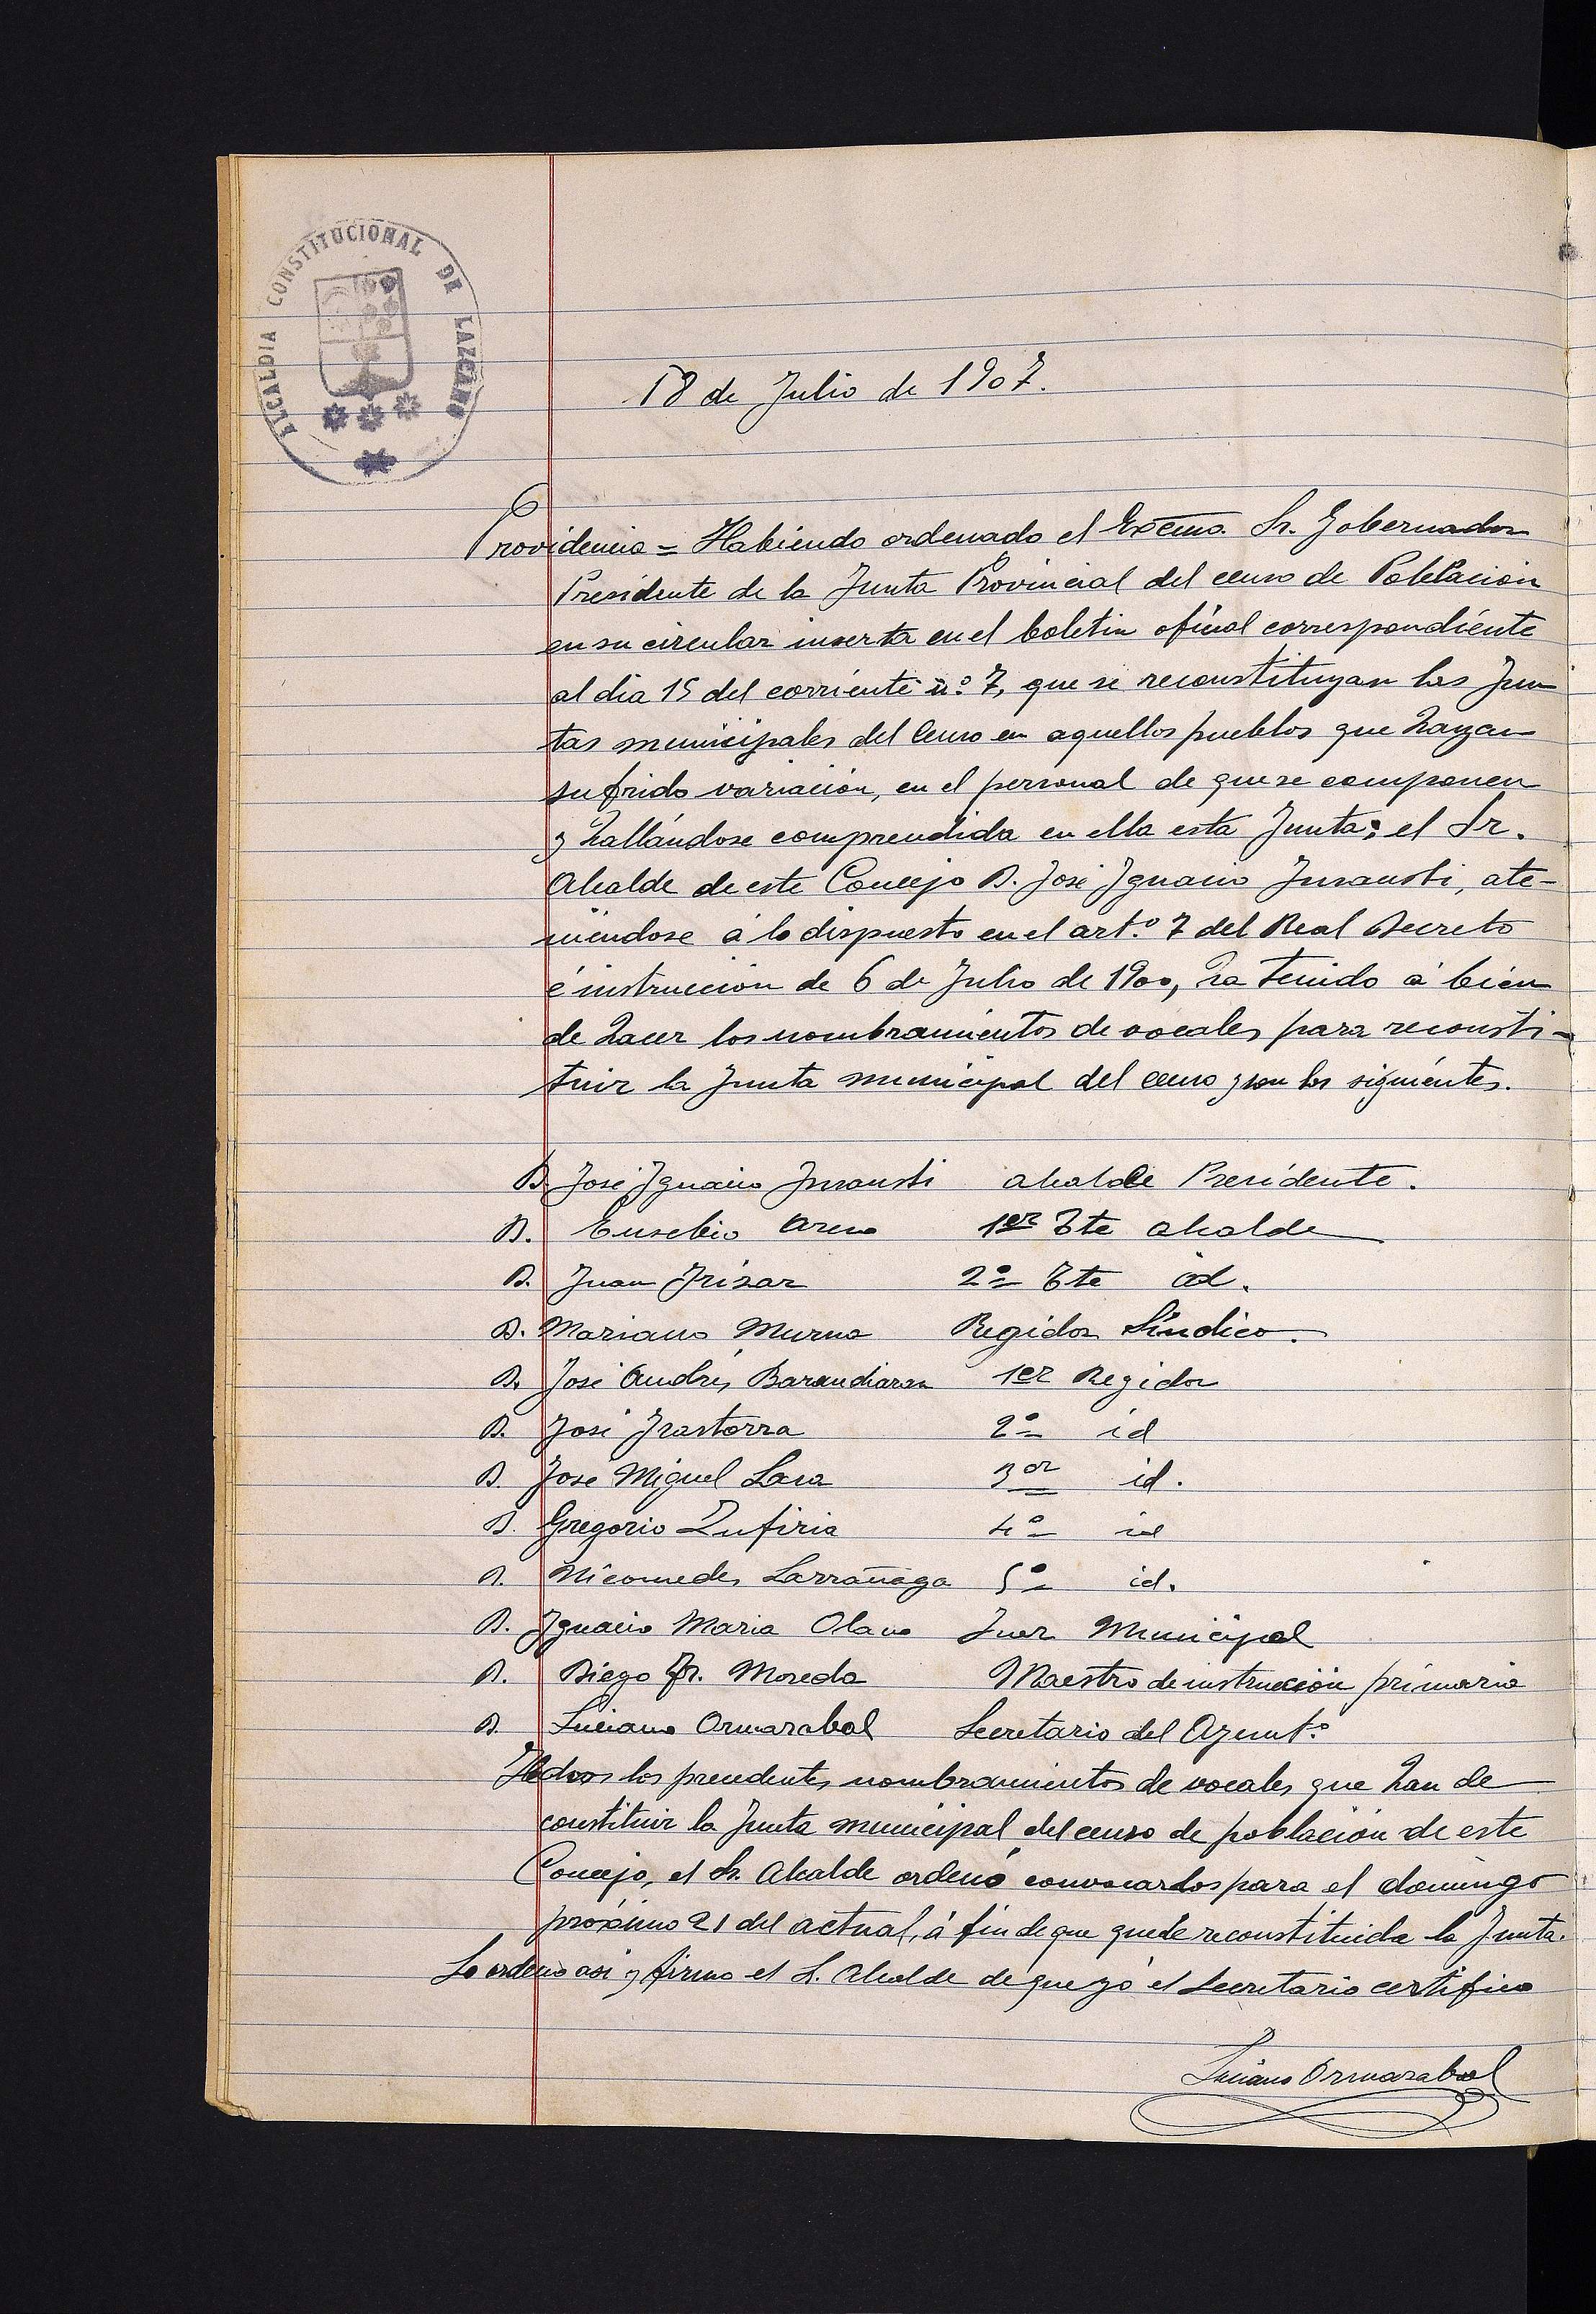 ALCALDIA CONSTITUCIONAL DE LAZCANO
18 de Julio de 1907.
Providencia = Habiendo ordenado el Excmo. Sr. Gobernador
Presidente de la Junta Provincial del censo de Poblacion
en su circular inserta en el boletin ofical correspondiente
al dia 15 del corriente nº 7, que se reconstituyan las Jun
tas municipales del Censo en aquellos pueblos que hayan
sufrido variación, en el personal de que se componen
y hallándose comprendida en ella esta Junta; el Sr.
Alcalde de este Concejo D. José Ignacio Insausti, ate-
niéndose á lo dispuesto en el artº 7 del Real Decreto
é instruccion de 6 de Julio de 1900, ha tenido á bien
de hacer los nombramientos de vocales para reconsti-
tuir la Junta municipal del censo y son los siguientes.
D José Ignacio Insausti alcalde Presidente.
D. Eusebio 1er Tte alcalde
D. Juan Irizar 2º Tte id.
D. Mariano Murua Regidor Síndico.
D. José Andrés Barandiaran 1er Regidor
D. José Irastorza 2º id
D. José Miguel Lasa 3er id.
D. Gregorio Zufiria 4º id
D. Nicomedes Larrañaga 5º id.
D. Ignacio Maria Olano Juez Municipal
D. Diego Fr. Moreda Maestro de instrucción primaria
D. Luciano Ormazabal Secretario del Ayuntº
Hechos los precedentes nombramientos de vocales que han de
constituir la Junta municipal del censo de poblacion de este
Concejo, el Sr. Alcalde ordenó convocarlos para el domingo
próximo 21 del actual, á fin de que quede reconstituida la Junta.
Lo ordeno asi y firmo el S. Alcalde de que yó el Secretario certifico
Luciano Ormazabal